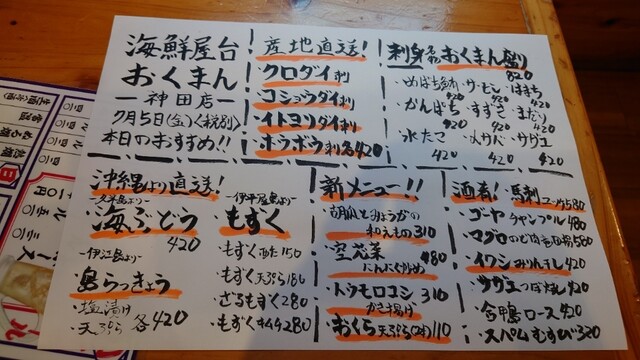 海鮮屋台
おくまん
ー神田店ー
7月5日(金)<税別>
本日のおすすめ!!
産地直送!
クロダイ刺
コショウダイ刺
イトヨリダイ刺
ホウボウ刺 各420
刺身
おくまん盛り
820
・めばち鮪 ・サーモン ・はまち
420 420 420
・かんぱち ・すずき ・まだい
420 420 420
・水たこ ・〆サバ ・サザエ
420 420 420
沖縄より直送!
ー久米島よりー
・海ぶどう
420
ー伊江島よりー
・島らっきょう
・塩漬け
・天ぷら 各420
ー伊平屋島よりー
・もずく
・もずく酢 150
・もずく天ぷら 180
・ざるもずく 280
・もずくキムチ 280
新メニュー!!
・胡瓜とみょうがの
和えもの 310
・空芯菜 480
にんにく炒め
・トウモロコシ 310
かき揚げ
・おくら天ぷら(1本) 110
酒肴!
・馬刺ユッケ 580
・ゴーヤチャンプル 480
・マグロのど肉 580
・イワシみりん干し 420
・サザエつぼ焼 420
・合鴨ロース 420
・スパムむすび 320